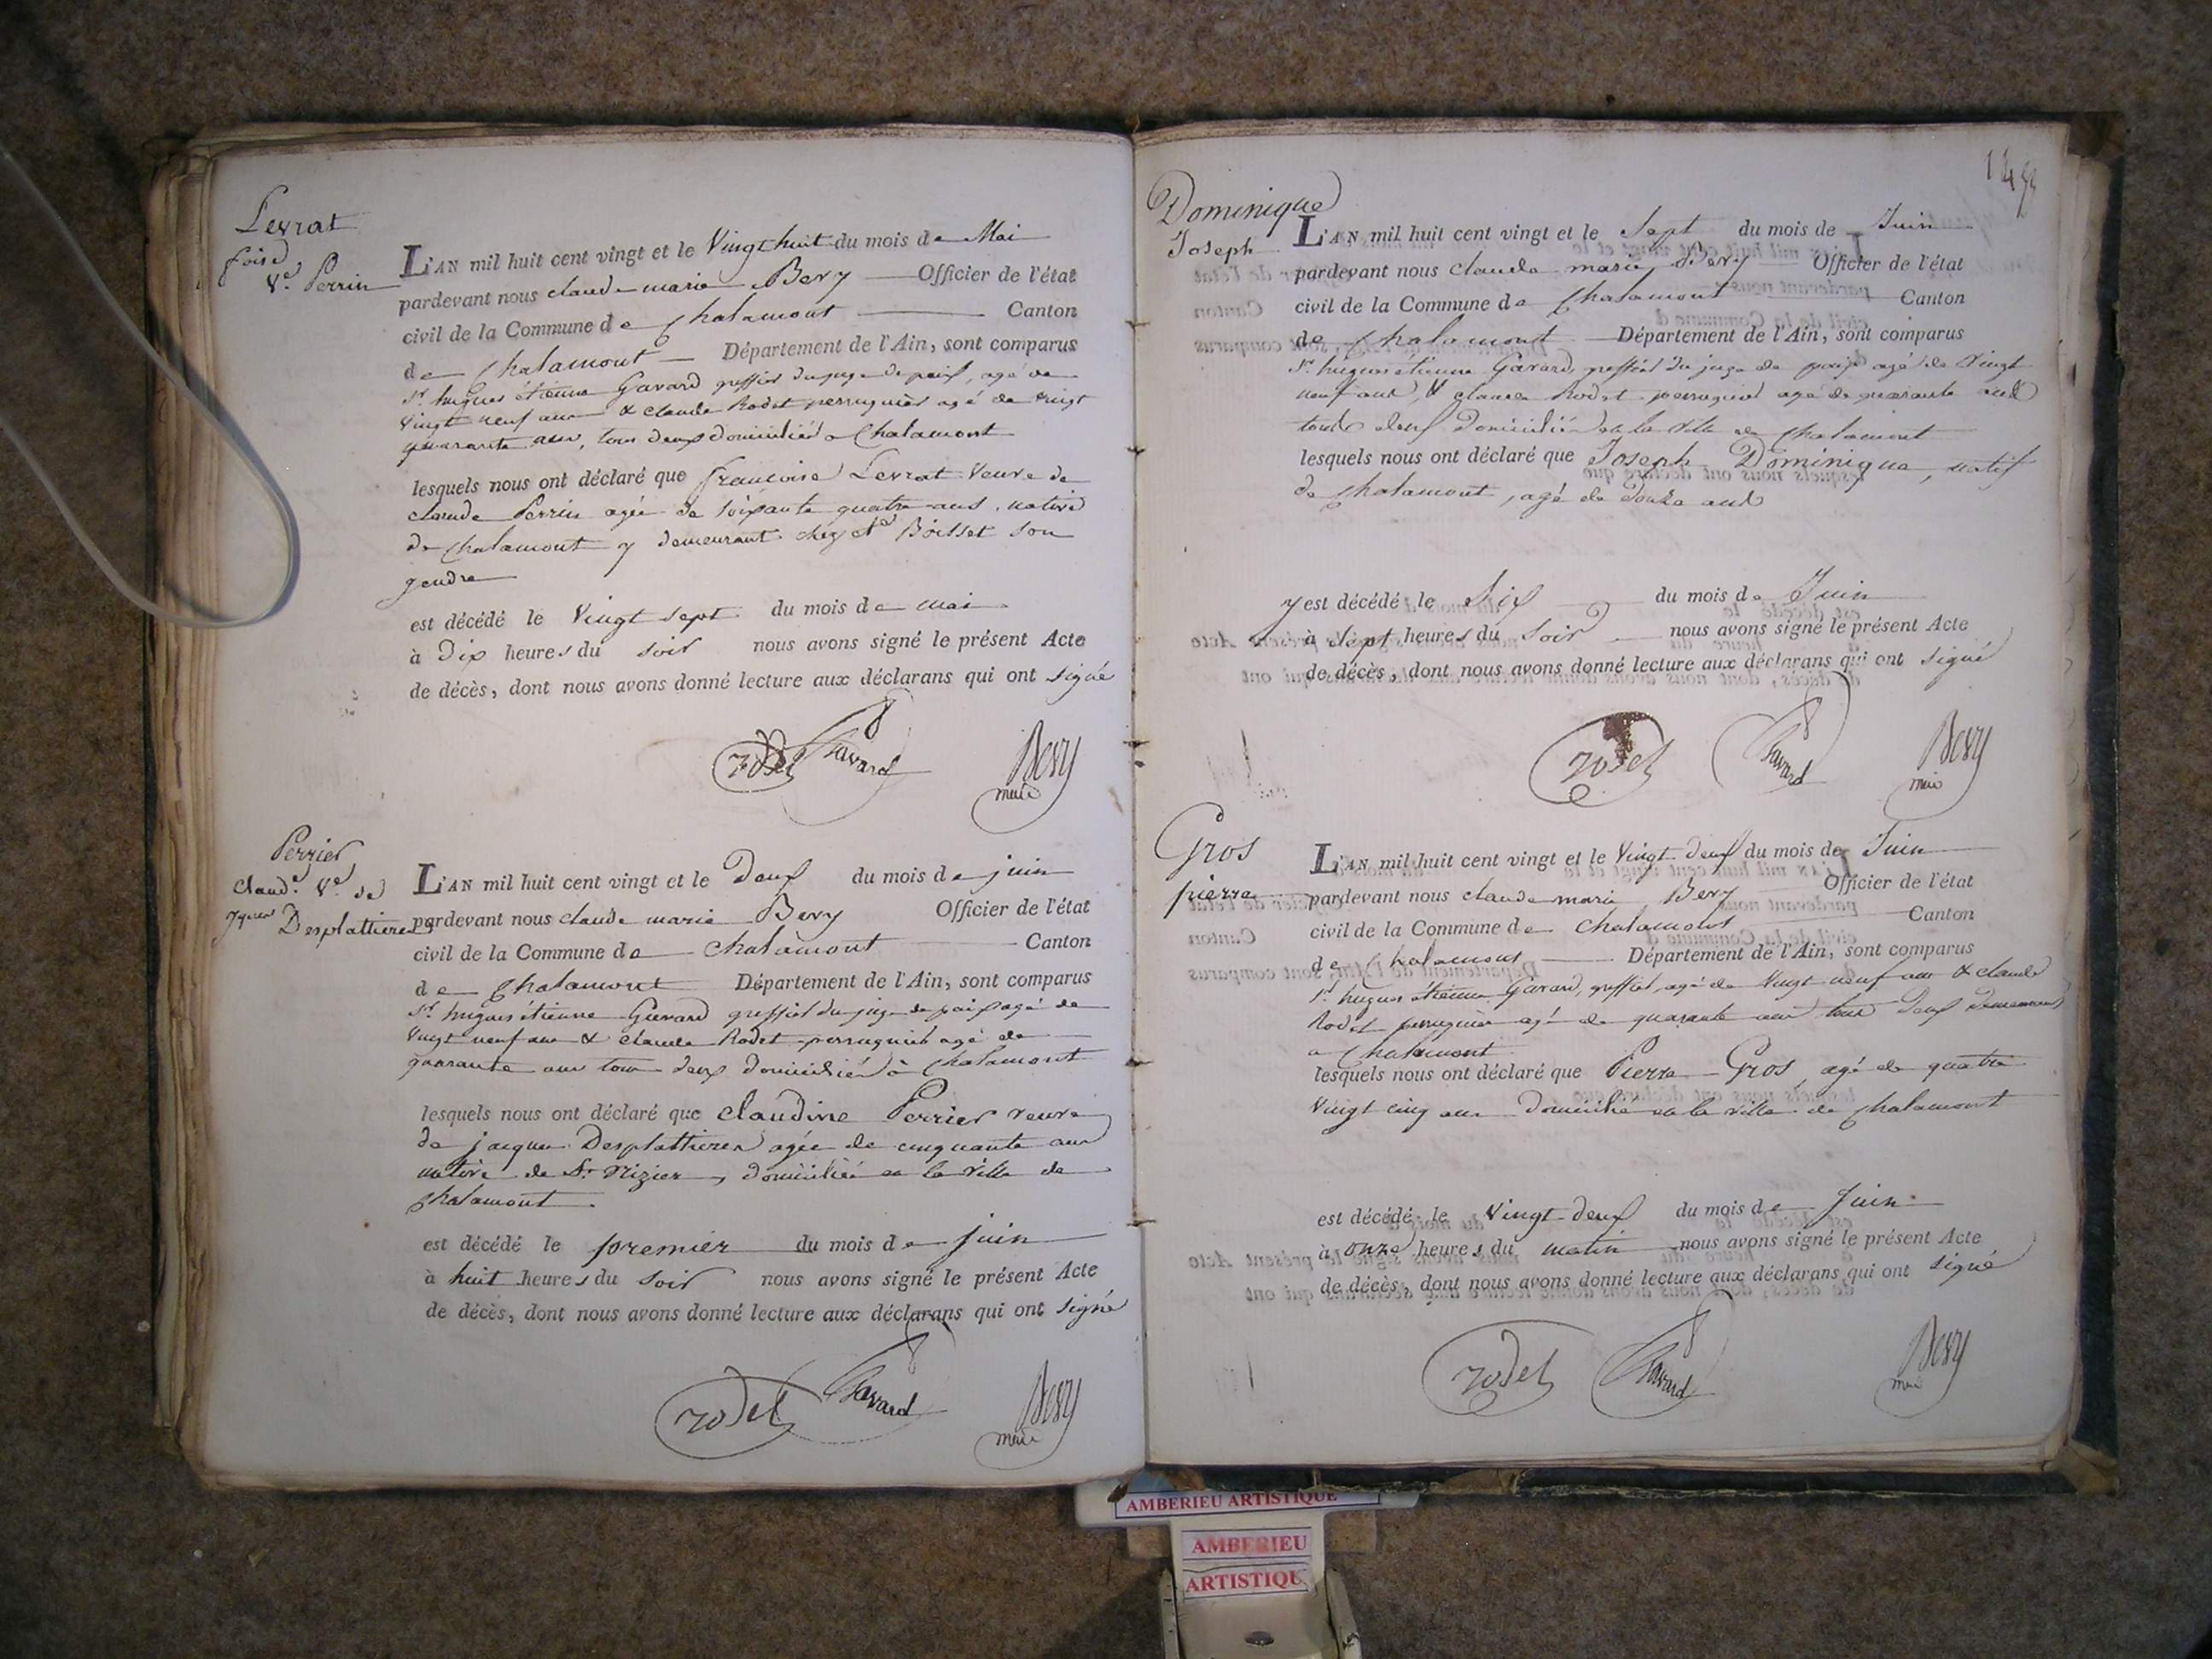 Levrat
foise
Ve. Perrin
L'AN mil huit cent vingt et le Vingt huit du mois de Mai
pardevant nous claude marie Bevy Officier de l'état
civil de la Commune de Chalamont Canton
de Chalamont Département de l'Ain, sont comparus
Sr. hugues étienne Gavard greffier du juge de paix, agé de
Vingt neuf ans & claude Rodet perruquier agé de
quarante ans, tous deux domiciliés a Chalamont
lesquels nous ont déclaré que francoise Levrat Veuve de
claude Perrin agée de soixante quatre ans, native
de Chalamont y demeurant chez Boisset son
gendre
est décédé le Vingt sept du mois de mai
à Dix heures du soir nous avons signé le présent Acte
de décès, dont nous avons donné lecture aux déclarans qui ont signé
rodet Gavard Bevy
maire
Perrier
Claude. Ve. de
Jques Desplattieres
L'AN mil huit cent vingt et le Deux du mois de juin
pardevant nous claude marie Bevy Officier de l'état
civil de la Commune de Chalamont Canton
de Chalamont Département de l'Ain, sont comparus
Sr. hugues étienne Gavard greffier du juge de paix agé de
Vingt neuf ans & claude Rodet perruquier agé de
quarante ans tous deux domiciliés à Chalamont
lesquels nous ont déclaré que claudine Perrier veuve
de jacques Desplattieres agée de cinquante ans
native de St. Nizier, domiciliée en la ville de
Chalamont
est décédé le premier du mois de juin
à huit heures du soir nous avons signé le présent Acte
de décès, dont nous avons donné lecture aux déclarans qui ont signé
rodet Gavard Bevy
maire
Dominique
Joseph
L'AN mil huit cent vingt et le Sept du mois de Juin
pardevant nous claude marie Bevy Officier de l'état
civil de la Commune de Chalamont Canton
de Chalamont Département de l'Ain, sont comparus
Sr. hugues étienne Gavard, greffier du juge de paix agé de Vingt
neuf ans, & claude Rodet perruquier agé de quarante ans
tous deux domiciliés en la ville de Chalamont
lesquels nous ont déclaré que Joseph Dominique, natif
de Chalamont, agé de Douze ans
y est décédé le Six du mois de Juin
à sept heures du soir nous avons signé le présent Acte
de décès, dont nous avons donné lecture aux déclarans qui ont signé
rodet Gavard Bevy
maire
Gros
pierre
L'AN mil huit cent vingt et le Vingt deux du mois de Juin
pardevant nous claude marie Bevy Officier de l'état
civil de la Commune de Chalamont Canton
de Chalamont Département de l'Ain, sont comparus
Sr. hugues étienne Gavard, greffier, agé de Vingt neuf ans & claude
Rodet perruquier agé de quarante ans tous deux demeurant
a Chalamont
lesquels nous ont déclaré que Pierre Gros, agé de quatre
Vingt cinq ans domicilié en la ville de Chalamont
est décédé le Vingt deux du mois de Juin
à onze heures du matin nous avons signé le présent Acte
de décès, dont nous avons donné lecture aux déclarans qui ont signé
rodet Gavard Bevy
maire
AMBERIEU ARTISTIQUE
AMBERIEU
ARTISTIQU